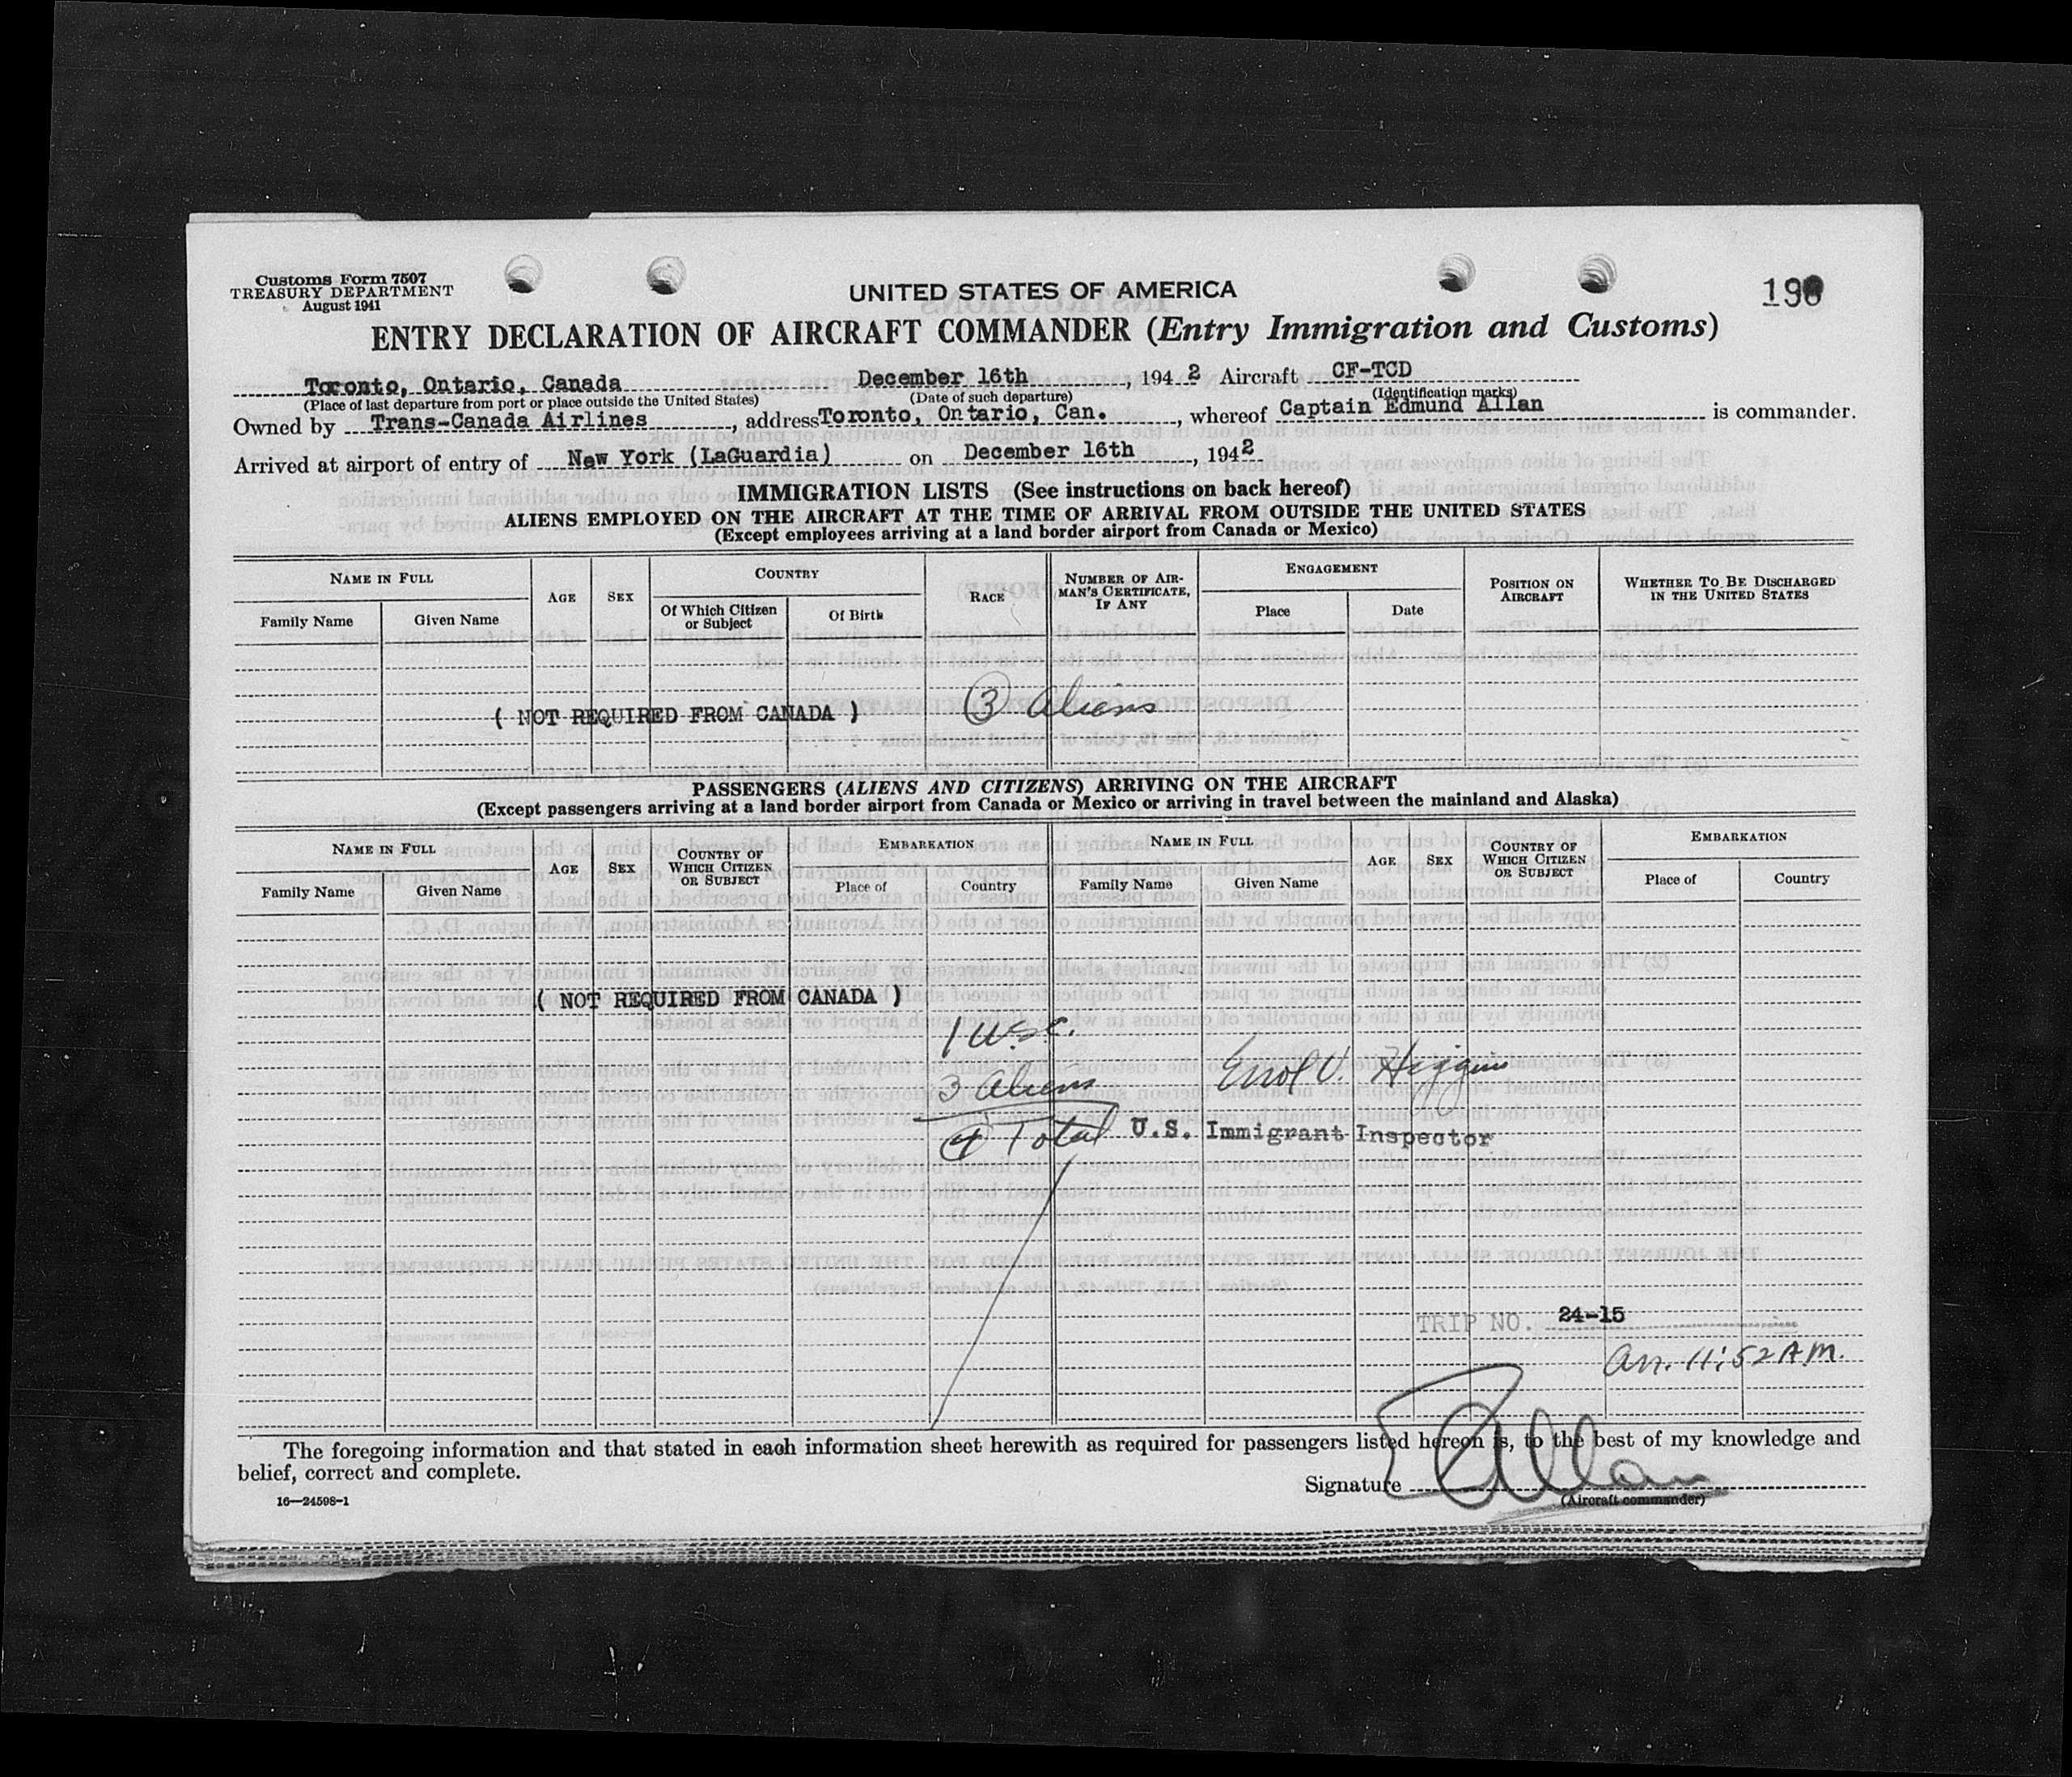 Customs Form 7507
TREASURY DEPARTMENT
August 1941
UNITED STATES OF AMERICA
ENTRY DECLARATION OF AIRCRAFT COMMANDER (Entry Immigration and Customs)
Toronto, Ontario, Canada December 16th, 1942 Aircraft CF-TCD
(Place of last departure from port or place outside the United States) (Date of such departure) (Identification marks)
Owned by Trans-Canada Airlines, address Toronto, Ontario, Can., whereof Captain Edmund Allan is commander.
Arrived at airport of entry of New York (LaGuardia) on December 16th, 1942
IMMIGRATION LISTS (See instructions on back hereof)
ALIENS EMPLOYED ON THE AIRCRAFT AT THE TIME OF ARRIVAL FROM OUTSIDE THE UNITED STATES
(Except employees arriving at a land border airport from Canada or Mexico)
NAME IN FULL AGE SEX COUNTRY RACE NUMBER OF AIRMAN'S CERTIFICATE, IF ANY ENGAGEMENT POSITION ON AIRCRAFT WHETHER TO BE DISCHARGED IN THE UNITED STATES
Family Name Given Name Of Which Citizen or Subject Of Birth Place Date
( NOT REQUIRED FROM CANADA ) 3 Aliens
PASSENGERS (ALIENS AND CITIZENS) ARRIVING ON THE AIRCRAFT
(Except passengers arriving at a land border airport from Canada or Mexico or arriving in travel between the mainland and Alaska)
NAME IN FULL AGE SEX COUNTRY OF WHICH CITIZEN OR SUBJECT EMBARKATION NAME IN FULL AGE SEX COUNTRY OF WHICH CITIZEN OR SUBJECT EMBARKATION
Family Name Given Name Place of Country Family Name Given Name Place of Country
( NOT REQUIRED FROM CANADA )
1 U.S.C.
3 Aliens Errol V. Higgins
4 Total U.S. Immigrant Inspector
TRIP NO. 24-15
Arr. 11:52 AM.
The foregoing information and that stated in each information sheet herewith as required for passengers listed hereon is, to the best of my knowledge and
belief, correct and complete.
Signature E Allan
(Aircraft commander)
16—24598-1